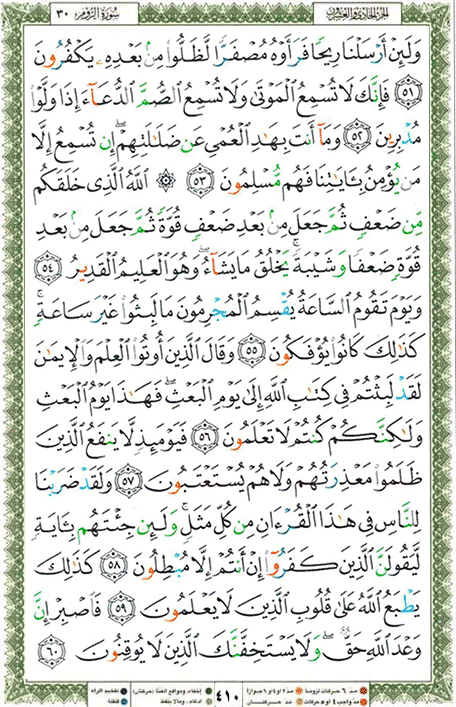 الجزء الحادي والعشرون
سُورَةُ الرُّومِ ٣٠
وَلَئِنْ أَرْسَلْنَا رِيحًا فَرَأَوْهُ مُصْفَرًّا لَّظَلُّوا۟ مِنۢ بَعْدِهِۦ يَكْفُرُونَ
٥١ فَإِنَّكَ لَا تُسْمِعُ الْمَوْتَىٰ وَلَا تُسْمِعُ الصُّمَّ الدُّعَآءَ إِذَا وَلَّوْا۟
مُدْبِرِينَ ٥٢ وَمَآ أَنتَ بِهَٰدِ الْعُمْىِ عَن ضَلَٰلَتِهِمْ ۖ إِن تُسْمِعُ إِلَّا
مَن يُؤْمِنُ بِـَٔايَٰتِنَا فَهُم مُّسْلِمُونَ ٥٣ ۞ اللَّهُ الَّذِى خَلَقَكُم
مِّن ضَعْفٍ ثُمَّ جَعَلَ مِنۢ بَعْدِ ضَعْفٍ قُوَّةً ثُمَّ جَعَلَ مِنۢ بَعْدِ
قُوَّةٍ ضَعْفًا وَشَيْبَةً ۚ يَخْلُقُ مَا يَشَآءُ ۖ وَهُوَ الْعَلِيمُ الْقَدِيرُ ٥٤
وَيَوْمَ تَقُومُ السَّاعَةُ يُقْسِمُ الْمُجْرِمُونَ مَا لَبِثُوا۟ غَيْرَ سَاعَةٍ ۚ
كَذَٰلِكَ كَانُوا۟ يُؤْفَكُونَ ٥٥ وَقَالَ الَّذِينَ أُوتُوا۟ الْعِلْمَ وَالْإِيمَٰنَ
لَقَدْ لَبِثْتُمْ فِى كِتَٰبِ اللَّهِ إِلَىٰ يَوْمِ الْبَعْثِ ۖ فَهَٰذَا يَوْمُ الْبَعْثِ
وَلَٰكِنَّكُمْ كُنتُمْ لَا تَعْلَمُونَ ٥٦ فَيَوْمَئِذٍ لَّا يَنفَعُ الَّذِينَ
ظَلَمُوا۟ مَعْذِرَتُهُمْ وَلَا هُمْ يُسْتَعْتَبُونَ ٥٧ وَلَقَدْ ضَرَبْنَا
لِلنَّاسِ فِى هَٰذَا الْقُرْءَانِ مِن كُلِّ مَثَلٍ ۚ وَلَئِن جِئْتَهُم بِـَٔايَةٍ
لَّيَقُولَنَّ الَّذِينَ كَفَرُوٓا۟ إِنْ أَنتُمْ إِلَّا مُبْطِلُونَ ٥٨ كَذَٰلِكَ
يَطْبَعُ اللَّهُ عَلَىٰ قُلُوبِ الَّذِينَ لَا يَعْلَمُونَ ٥٩ فَاصْبِرْ إِنَّ
وَعْدَ اللَّهِ حَقٌّ ۖ وَلَا يَسْتَخِفَّنَّكَ الَّذِينَ لَا يُوقِنُونَ ٦٠
مد ٦ حركات لزوماً مد ٢ أو ٤ أو ٦ جوازاً
مد واجب ٤ أو ٥ حركات مد حركتان
٤١٠
إخفاء، ومواقع الغنة (حركتان) تفخيم الراء
إدغام، وما لا يلفظ قلقلة